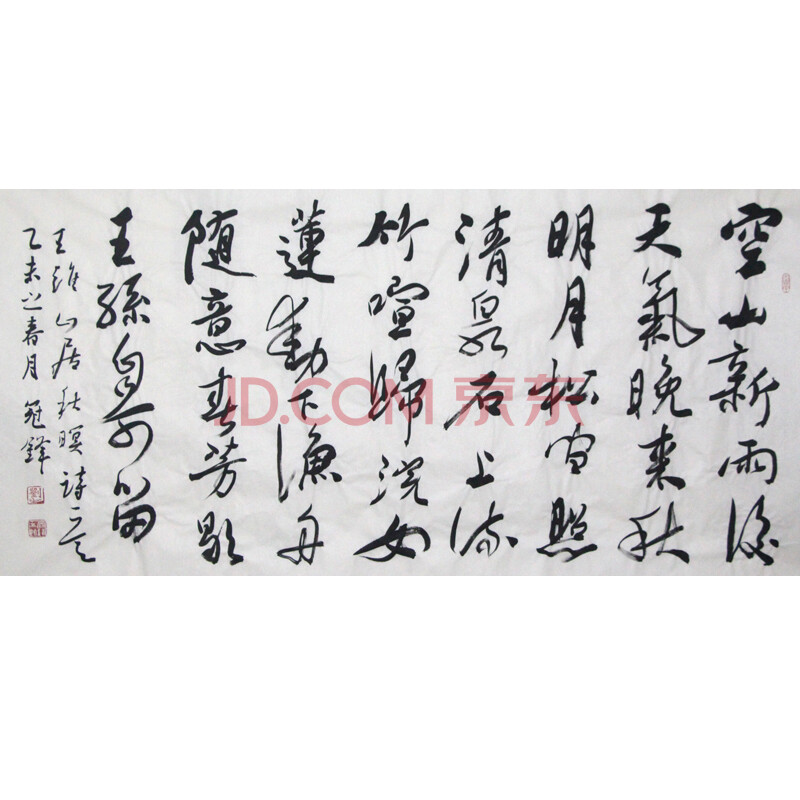 空山新雨後
天氣晚来秋
明月松间照
清泉石上流
竹喧歸浣女
蓮動下漁舟
随意春芳歇
王孫自可留
王維山居秋暝詩一首
乙未之春月冠鋒
JD.COM 京东